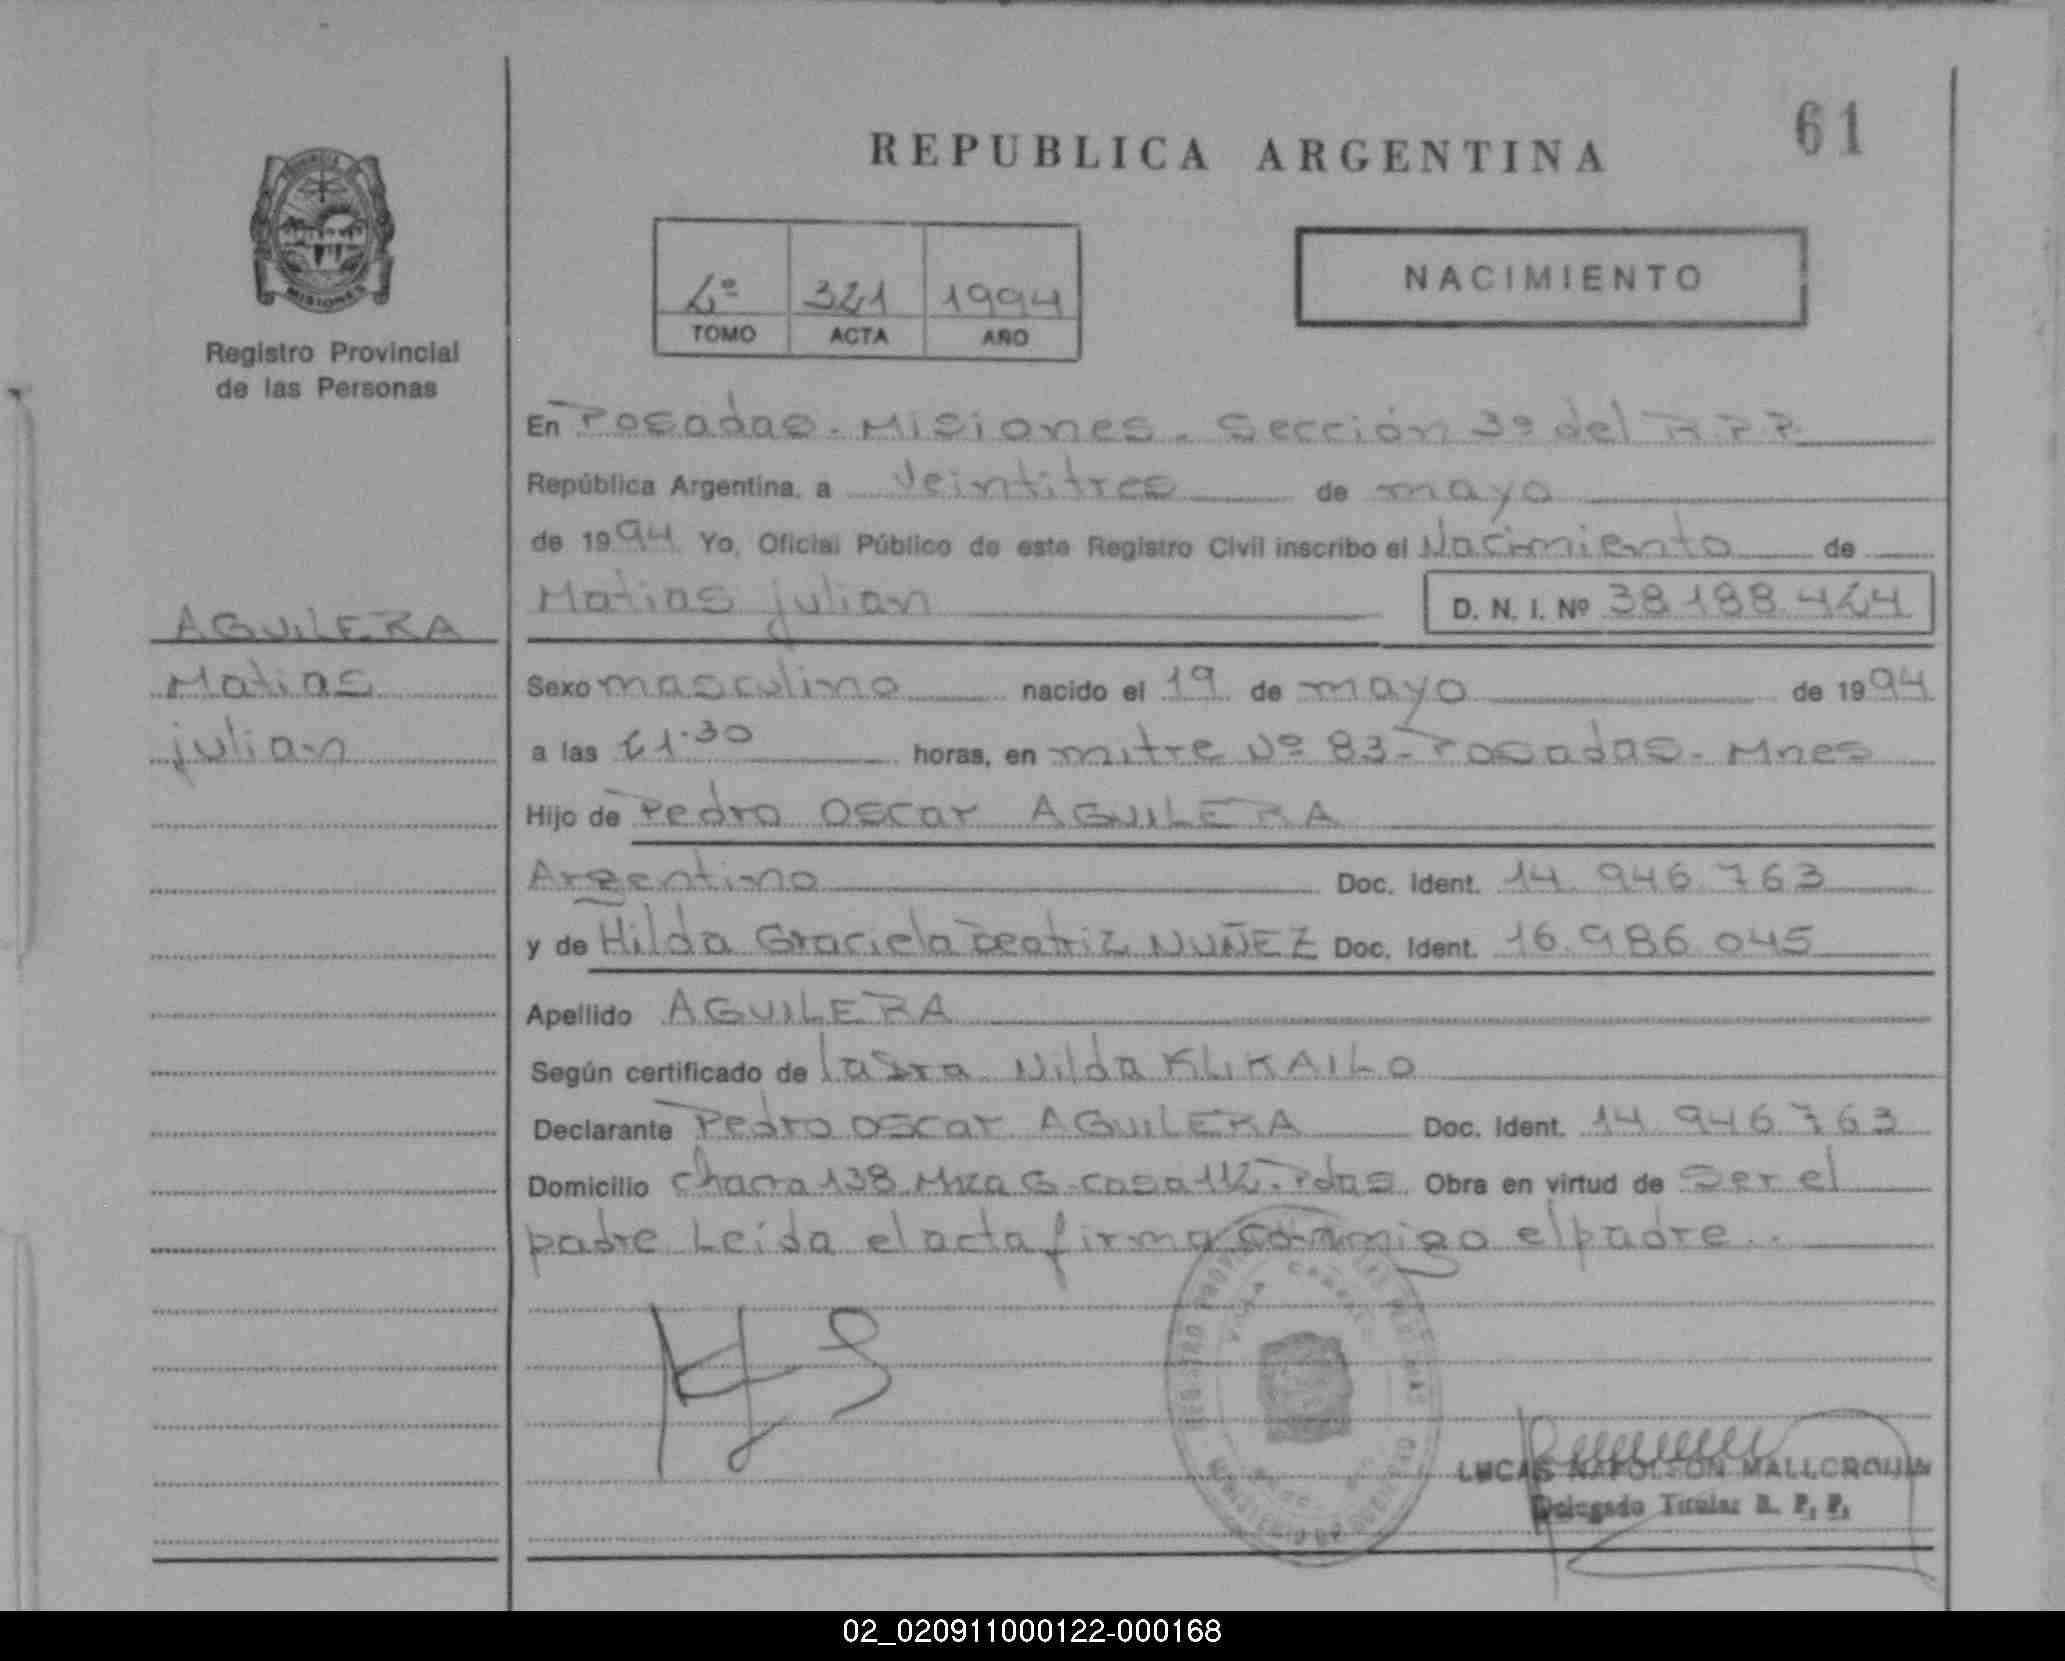 61
REPUBLICA ARGENTINA
NACIMIENTO
2º 321 1994
TOMO ACTA AÑO
MISIONES
Registro Provincial
de las Personas
En Posadas - Misiones - Sección 3º del R.P.P.
República Argentina, a Veintitres de mayo
de 1994 Yo, Oficial Público de este Registro Civil inscribo el Nacimiento de
Matias julian D. N. I. Nº 38.188.424
AGUILERA
Matias
julian
Sexo masculino nacido el 19 de mayo de 1994
a las 21.30 horas, en mitre Nº 83 - Posadas - Mnes
Hijo de Pedro Oscar AGUILERA
Argentino Doc. Ident. 14.946.763
y de Hilda Graciela Beatriz NUÑEZ Doc. Ident. 16.986.045
Apellido AGUILERA
Según certificado de la Sra Nilda KLIKAILO
Declarante Pedro Oscar AGUILERA Doc. Ident. 14.946.763
Domicilio chacra 138 Mza G - casa 112 - Pdas Obra en virtud de Ser el
padre Leida el acta firma conmigo el padre..
LUCAS NAPOLEON
Delegado Titular R. P. P.
02_020911000122-000168